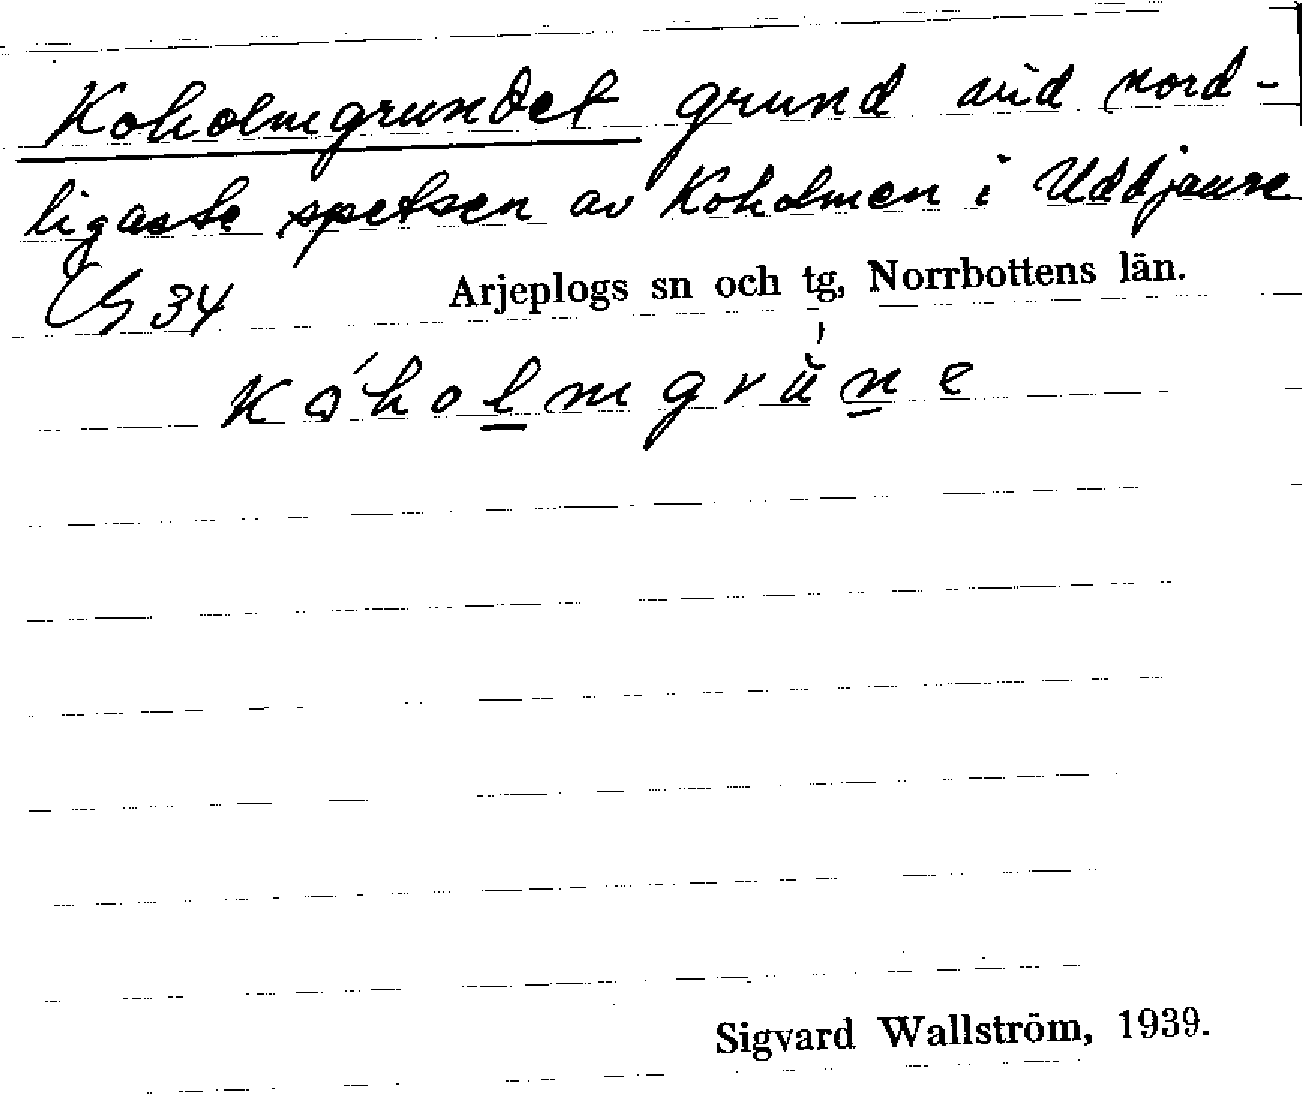 Koholmgrundet grund vid nord-
ligaste spetsen av Koholmen i Uddjaure
G 34 Arjeplogs sn och tg, Norrbottens län.
Kóholmgrüne
Sigvard Wallström, 1939.